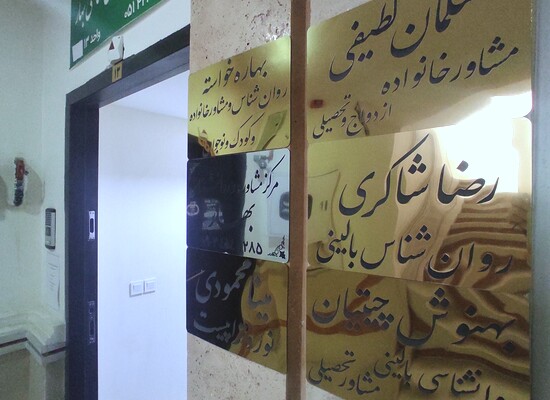 واحد ۱۳
۱۳
بهاره خواسته
روان شناس و مشاور خانواده
و کودک و نوجوان
مرکز مشاوره
۲۸۵
مینا محمودی
سلمان لطیفی
مشاور خانواده
ازدواج و تحصیلی
رضا شاکری
روان شناس بالینی
بهنوش چینیان
روانشناسی بالینی
مشاور تحصیلی